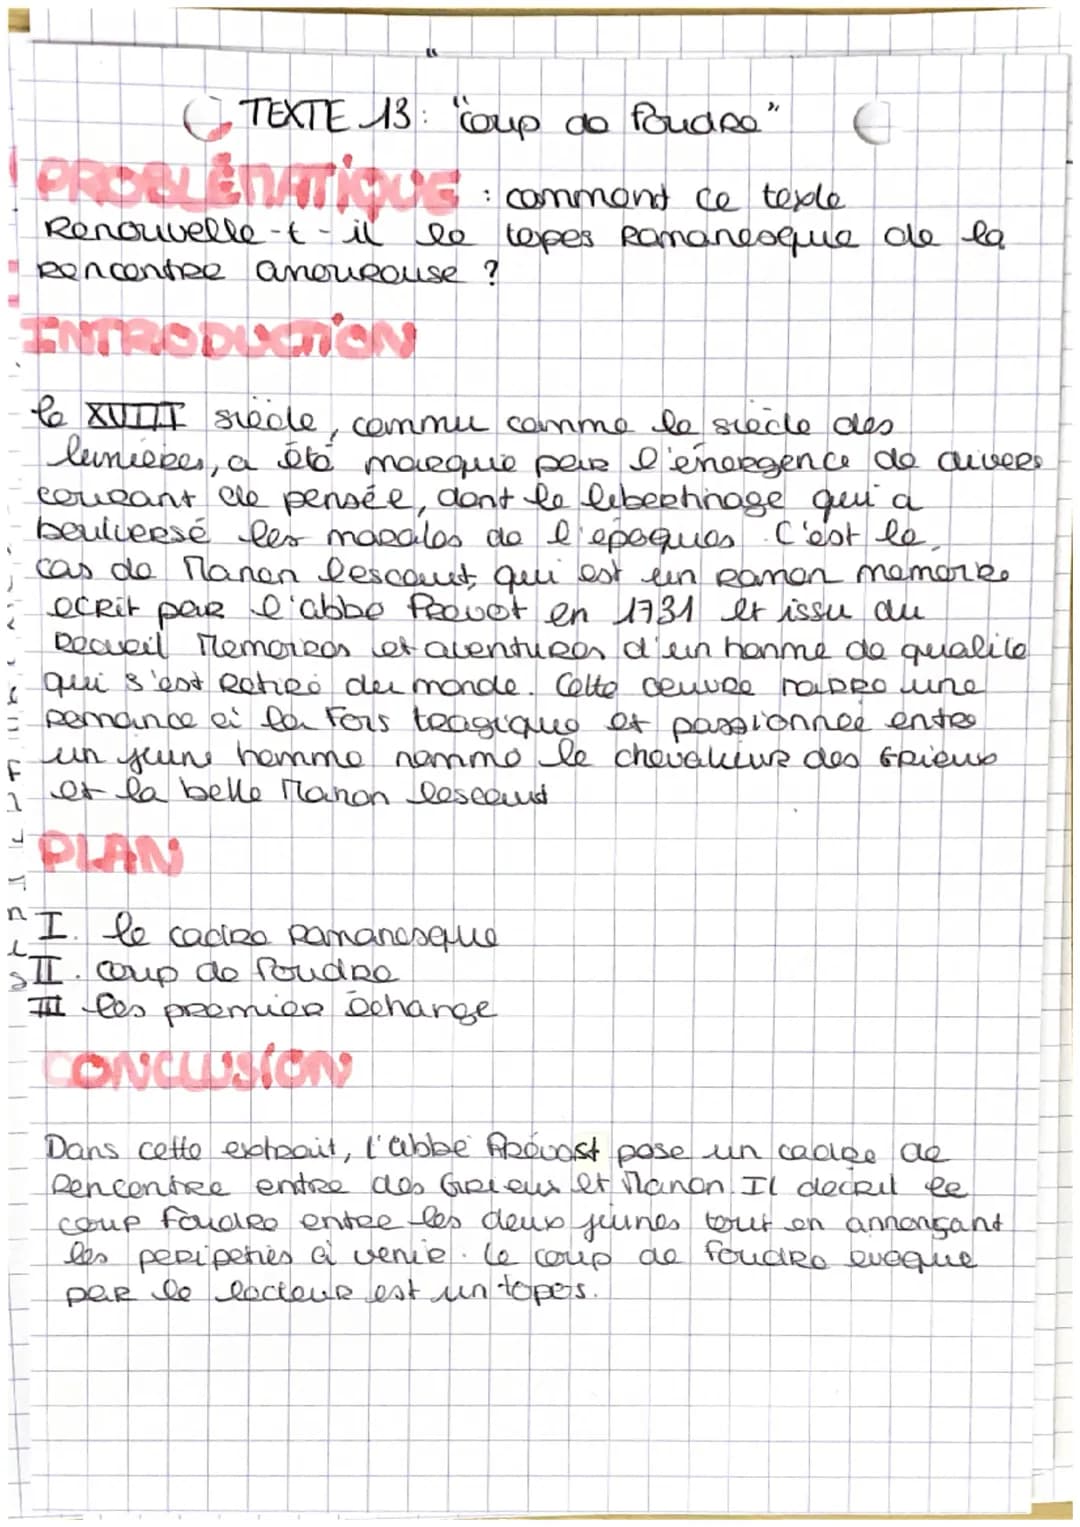 TEXTE 13: "coup de foudre"
PROBLÉMATIQUE : comment ce texte
Renouvelle-t-il le topos Romanesque de la
Rencontre amoureuse ?
INTRODUCTION
le XVIII siècle, connu comme le siècle des
lumières, a été marqué par l'émergence de divers
courant de pensée, dont le libertinage qui a
boulversé les morales de l'époques. C'est le
cas de Manon lescaut, qui est un Roman memoire
ecrit par l'abbe Prevot en 1731 et issu du
Recueil Memoires et aventures d'un homme de qualite
qui s'est Retiré du monde. Cette oeuvre narre une
Romance à la Fois tragique et passionnée entre
un jeune homme nommé le chevalier des Grieux
et la belle Manon lescaut
PLAN
I. le cadre Romanesque
II. coup de foudre
III les premier Echange
CONCLUSION
Dans cette extrait, l'abbé Prévost pose un cadre de
Rencontre entre des Grieux et Manon. Il decrit le
coup foudre entre les deux jeunes tout en annonçant
les peripeties à venir. le coup de foudre evoque
par le lecteur est un topos.